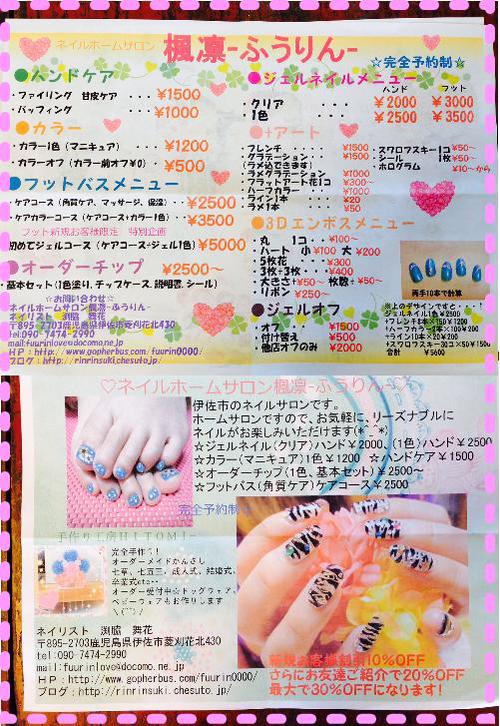 ネイルホームサロン 楓凛-ふうりん-
☆完全予約制☆
●ハンドケア
・ファイリング 甘皮ケア ・・・ ¥1500
・バッフィング ・・・ ¥1000
●カラー
・カラー1色（マニキュア） ・・・ ¥1200
・カラーオフ（カラー前オフ¥0）・ ¥500
●フットバスメニュー
・ケアコース（角質ケア、マッサージ、保湿）・・ ¥2500
・ケアカラーコース（ケアコース+カラー1色） ¥3500
フット新規お客様限定 特別企画
初めてジェルコース（ケアコース+ジェル1色） ¥5000
●オーダーチップ ¥2500～
基本セット（1色塗り、チップケース、説明書、シール）
☆お問い合わせ☆
ネイルホームサロン楓凛-ふうりん-
ネイリスト 渕脇 舞花
〒895-2703鹿児島県伊佐市菱刈花北430
tel:090-7474-2990
mail:fuurinlove@docomo.ne.jp
HP：http://www.gopherbus.com/fuurin0000/
ブログ：http://rinrinsuki.chesuto.jp/
●ジェルネイルメニュー
ハンド フット
・クリア ・・・ ¥2000 ¥3000
・1色 ・・・ ¥2500 ¥3500
●+アート
・フレンチ ・・・ ¥1500
・グラデーション ・・・ ¥1500
（ラメ込できます）
・ラメグラデーション ¥1000
・フラットアート花1コ ¥300～
・ハーフカラー ¥1000
・ライン1本 ¥20
・ラメ1本 ¥50
・スワロフスキー1コ ¥50～
・シール 1枚 ¥50～
・ホログラム ¥10～から
●3Dエンボスメニュー
・丸 1コ ¥100～
・ハート 小 ¥100 大 ¥200
・5枚花 ¥300
・3枚+3枚 ¥400
・大きさ+¥50～ 枚数+¥50～
・リボン ¥250～
両手10本で計算
●ジェルオフ
・オフ ¥1500
・付け替え ¥500
・他店オフのみ ¥2000
※上のデザインですと・・・!
ジェルネイル1色¥2500
+フレンチ1本¥150×
+ハーフカラー1本¥100×
+ライン10本×¥20
+スワロフスキー3コ×50 ¥150
合計 ¥5600
♡ネイルホームサロン楓凛-ふうりん-♡
伊佐市のネイルサロンです。
ホームサロンですので、お気軽に、リーズナブルに
ネイルがお楽しみいただけます(*^^*)
☆ジェルネイル（クリア）ハンド¥2000、（1色）ハンド¥2500
☆カラー（マニキュア）1色¥1200 ☆ハンドケア¥1500
☆オーダーチップ（1色、基本セット）¥2500～
☆フットバス（角質ケア）ケアコース¥2500
完全予約制☆
手作り工房HITOMI-
完全手作り！
オーダーメイドかんざし
七草、七五三、成人式、結婚式、
卒業式etc…
オーダー受付中☆ドッグウェア、
ベビーウェアもお作りします
ネイリスト 渕脇 舞花
〒895-2703鹿児島県伊佐市菱刈花北430
tel:090-7474-2990
mail:fuurinlove@docomo.ne.jp
HP：http://www.gopherbus.com/fuurin0000/
ブログ：http://rinrinsuki.chesuto.jp/
新規お客様割引10%OFF
さらにお友達ご紹介で20%OFF
最大で30%OFFになります！